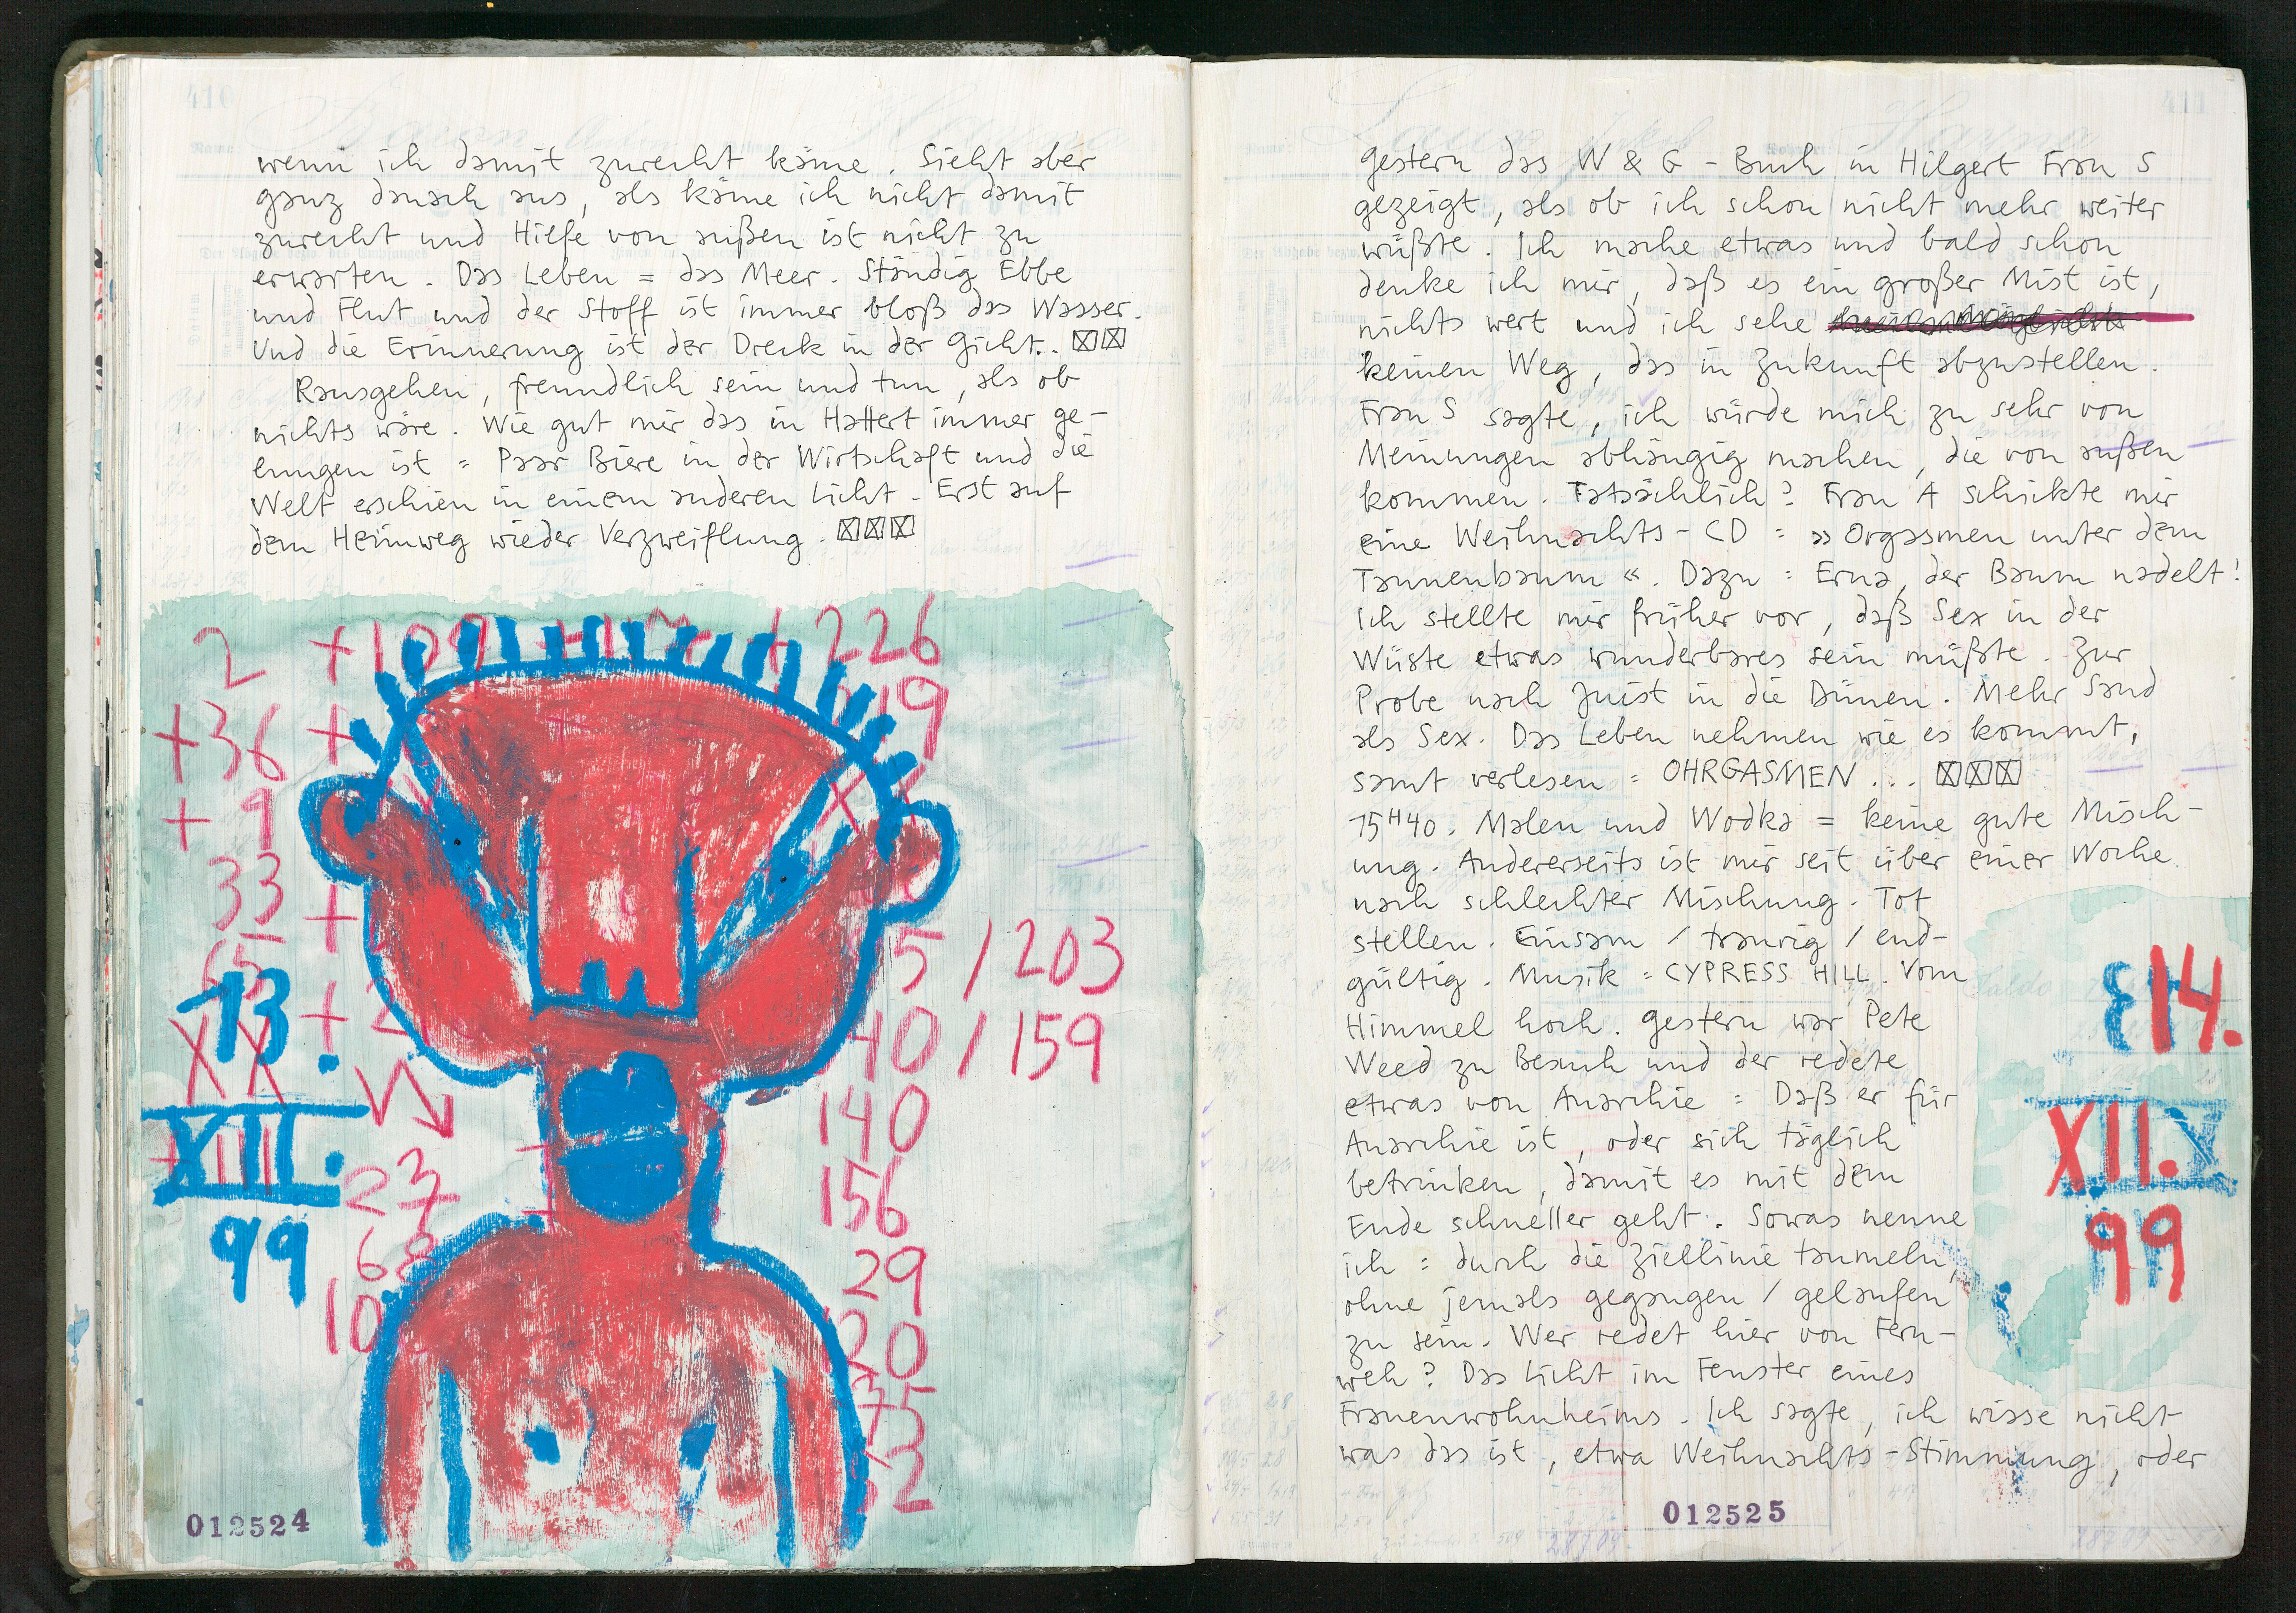 wenn ich damit zurecht käme. Sieht aber
ganz danach aus, als käme ich nicht damit
zurecht und Hilfe von außen ist nicht zu
erwarten. Das Leben = das Meer. Ständig Ebbe
und Flut und der Stoff ist immer bloß das Wasser.
Und die Erinnerung ist der Dreck in der Gicht.. ☒☒
Rausgehen, freundlich sein und tun, als ob
nichts wäre. Wie gut mir das in Hattert immer ge-
lungen ist = Paar Biere in der Wirtschaft und die
Welt erschien in einem anderen Licht. Erst auf
dem Heimweg wieder Verzweiflung. ☒☒☒
2 + 109 226
+36 + 19
+ 9
33 +
65 5 / 203
XX + 2 40 / 159
140
27 156
68 29
10 20
35
52
13.
XII.
99
012524
gestern das W & G - Buch in Hilgert Frau S
gezeigt, als ob ich schon nicht mehr weiter
wüßte. Ich mache etwas und bald schon
denke ich mir, daß es ein großer Mist ist,
nichts wert und ich sehe
keinen Weg, das in Zukunft abzustellen.
Frau S sagte, ich würde mich zu sehr von
Meinungen abhängig machen, die von außen
kommen. Tatsächlich? Frau A schickte mir
eine Weihnachts-CD = »Orgasmen unter dem
Tannenbaum«. Dazu = Erna, der Baum nadelt!
Ich stellte mir früher vor, daß Sex in der
Wüste etwas wunderbares sein müßte. Zur
Probe nach Juist in die Dünen. Mehr Sand
als Sex. Das Leben nehmen wie es kommt,
samt verlesen = OHRGASMEN... ☒☒☒
15H40. Malen und Wodka = keine gute Misch-
ung. Andererseits ist mir seit über einer Woche
nach schlechter Mischung. Tot
stellen. Einsam / traurig / end-
gültig. Musik = CYPRESS HILL. Vom
Himmel hoch. Gestern war Pete
Weed zu Besuch und der redete
etwas von Anarchie = Daß er für
Anarchie ist, oder sich täglich
betrinken, damit es mit dem
Ende schneller geht. Sowas nenne
ich = durch die Ziellinie taumeln,
ohne jemals gegangen / gelaufen
zu sein. Wer redet hier von Fern-
weh? Das Licht im Fenster eines
Frauenwohnheims. Ich sagte, ich wisse nicht
was das ist, etwa Weihnachts-Stimmung, oder
14.
XII.
99
012525